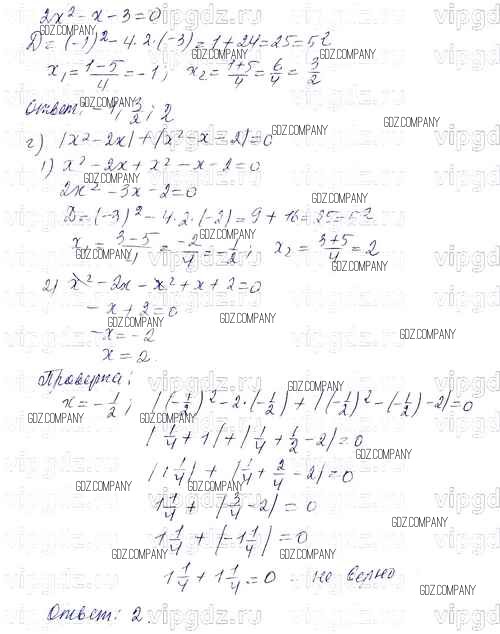 2x² - x - 3 = 0
D = (-1)² - 4·2·(-3) = 1 + 24 = 25 = 5²
x₁ = (1-5)/4 = -1; x₂ = (1+5)/4 = 6/4 = 3/2
Ответ: -1; 3/2; 2
г) |x² - 2x| + |x² - x - 2| = 0
1) x² - 2x + x² - x - 2 = 0
2x² - 3x - 2 = 0
D = (-3)² - 4·2·(-2) = 9 + 16 = 25 = 5²
x₁ = (3-5)/4 = -2/4 = -1/2; x₂ = (3+5)/4 = 2
2) x² - 2x - x² + x + 2 = 0
-x + 2 = 0
-x = -2
x = 2
Проверка:
x = -1/2; |(-1/2)² - 2·(-1/2)| + |(-1/2)² - (-1/2) - 2| = 0
|1/4 + 1| + |1/4 + 1/2 - 2| = 0
|1 1/4| + |1/4 + 2/4 - 2| = 0
1 1/4 + |3/4 - 2| = 0
1 1/4 + |-1 1/4| = 0
1 1/4 + 1 1/4 = 0 - не верно
Ответ: 2.
GDZ.COMPANY
vipgdz